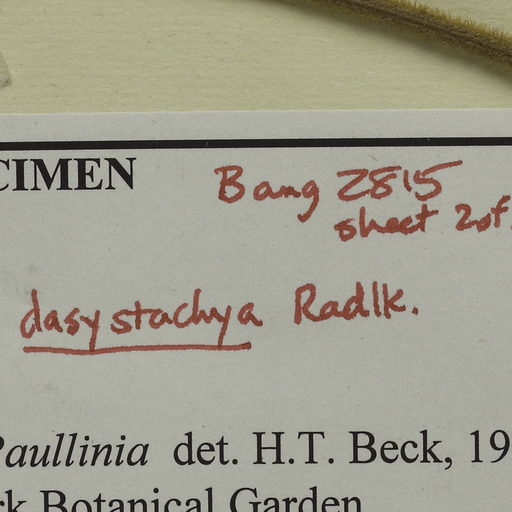 CIMEN
Bang 2815
sheet 2 of
dasystachya Radlk.
Paullinia det. H.T. Beck, 19
rk Botanical Garden